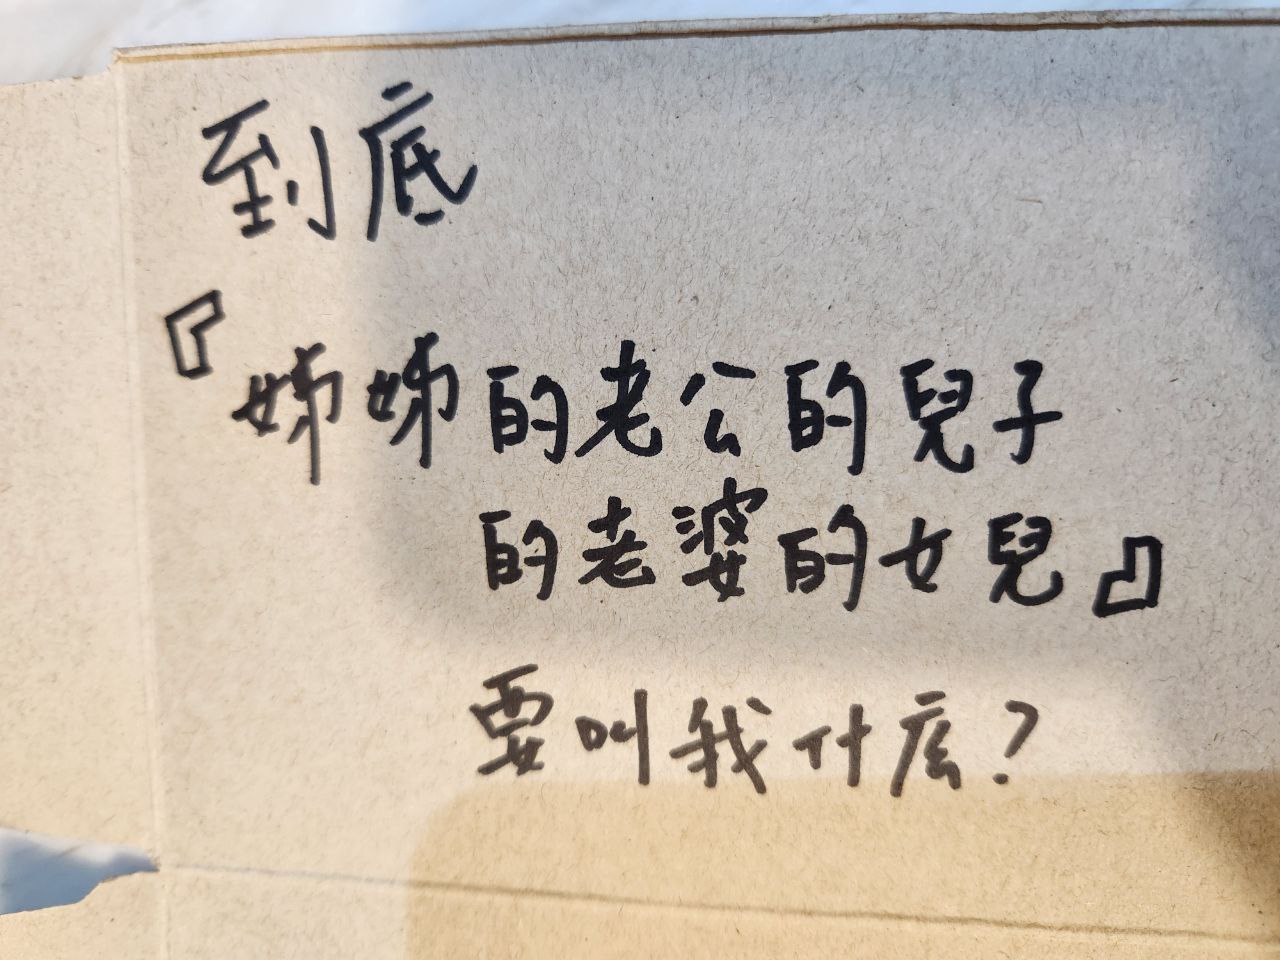 到底
『姊姊的老公的兒子
的老婆的女兒』
要叫我什広?